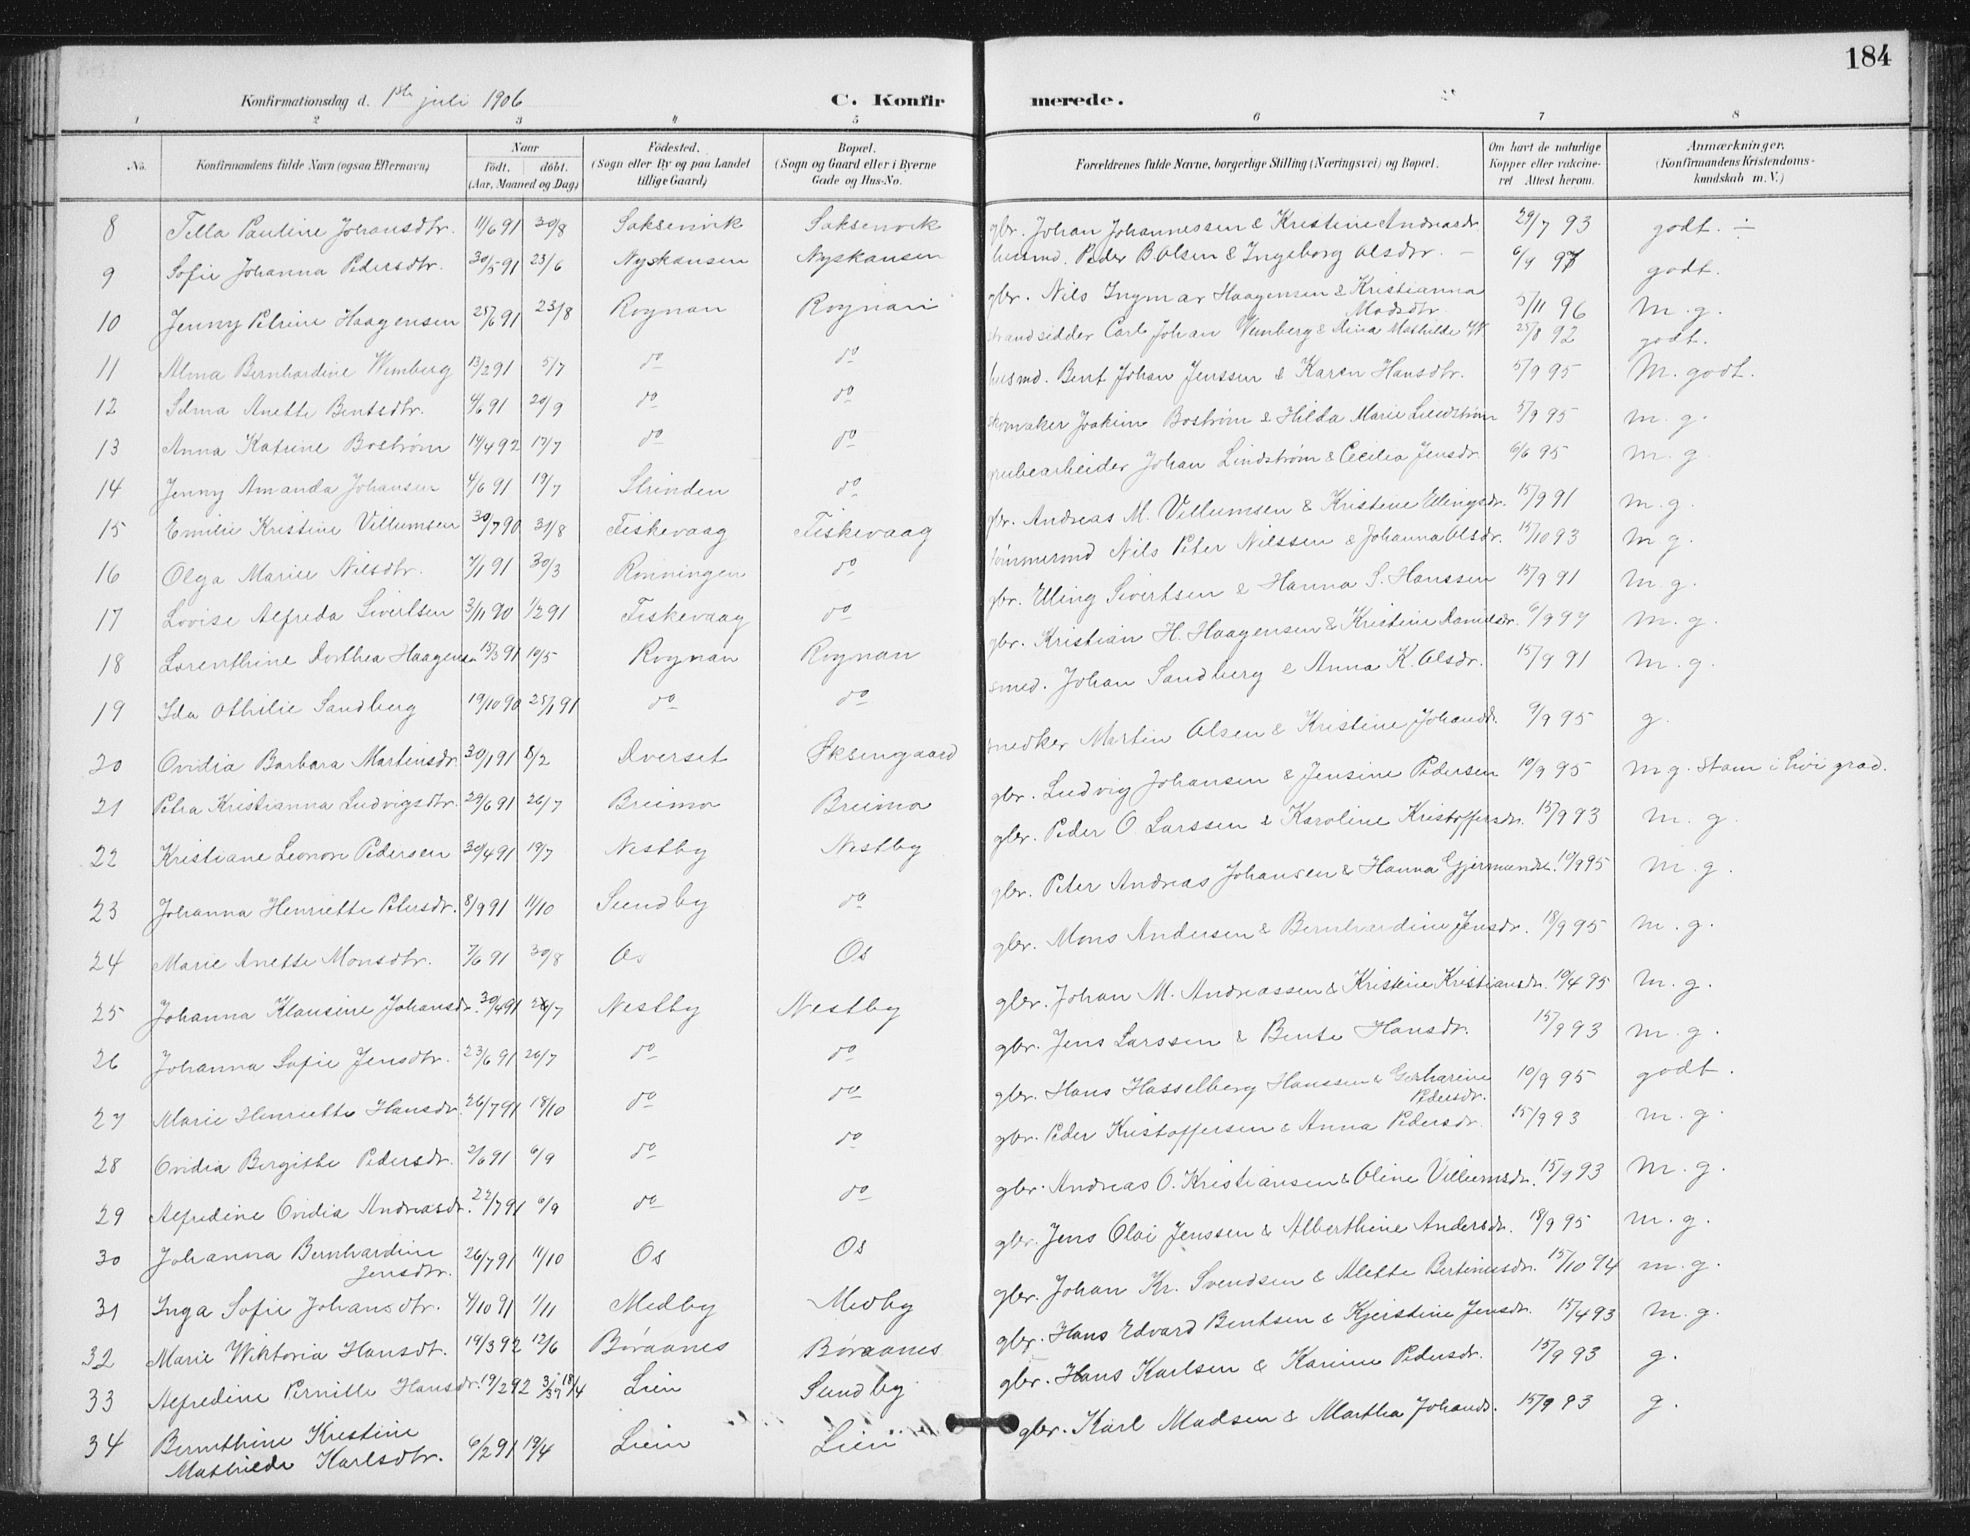 184
Konfirmationsdag d. 1ste juli 1906 C. Konfir merede.
1 2 3 4 5 6 7 8
No. Konfirmandens fulde Navn (ogsaa Efternavn) Naar født. døbt. (Aar, Maaned og Dag) Födested. (Sogn eller By og paa Landet tillige Gaard) Bopæl. (Sogn og Gaard eller i Byerne Gade og Hus-No. Forældrenes fulde Navne, borgerlige Stilling (Næringsvei) og Bopæl. Om havt de naturlige Kopper eller vakcineret Attest herom. Anmærkninger. (Konfirmandens Kristendomskundskab m. V.)
8 Tilla Pauline Johansdtr. 11/6 91 30/8 Saksenvik Saksenvik gbr. Johan Johannessen & Kristine Andreasdr. 29/7 93 godt. ÷
9 Sofie Johanna Pedersdtr. 30/5 91 23/6 Nyskansen Nyskansen husmd. Peder B. Olsen & Ingeborg Olsdtr. godt.
10 Jenny Petrine Haagensen 25/6 91 23/8 Rognan Rognan gbr. Nils Ingmar Haagensen & Kristianna Madsdtr. 5/11 96 m. g.
11 Alma Bernhardine Wimberg 13/2 91 5/7 do do strandsidder Carl Johan Wimberg & Alina Mathilde W. 25/8 92 godt.
12 Selma Anette Bentsdtr. 4/6 91 20/9 do do husmd. Bent Johan Jenssen & Karen Hansdtr. 5/9 95 M. godt.
13 Anna Katrine Boström 14/4 92 17/7 do do skomaker Joakim Boström & Hilda Marie Lundström 5/9 95 m. g.
14 Jenny Amanda Johansen 4/6 91 19/7 Strinden do grubearbeider Johan Lindström & Cecilia Jensdr. 6/6 95 m. g.
15 Emilie Kristine Villumsen 30/7 90 31/8 Fiskevaag Fiskevaag gbr. Andreas M. Villumsen & Kristine Ellingsdr. 15/9 91 m. g.
16 Olga Marie Nilsdtr. 7/1 91 30/3 Rönningen do tömmermd Nils Peter Nilssen & Johanna Olsdr. 15/10 93 m. g.
17 Lovise Alfreda Sivertsen 3/11 90 1/2 91 Fiskevaag do gbr. Elling Sivertsen & Hanna S. Hanssen 15/9 91 m. g.
18 Larenthine Dorthea Haagensen 15/3 91 19/5 Rognan Rognan gbr. Kristian H. Haagensen & Kristine Danielsdr. 6/9 97 m. g.
19 Ida Othilie Sandberg 19/10 90 25/1 91 do do smed. Johan Sandberg & Anna K. Olsdr. 15/9 91 m. g.
20 Ovidia Barbara Martinsdr. 30/1 91 8/2 Dverset Øksengaard snedker Martin Olsen & Kristine Johansdr. 9/9 95 g.
21 Petra Kristianna Ludvigsdtr. 29/6 91 26/7 Breimo Breimo gbr. Ludvig Johansen & Jensine Pedersen 10/9 95 m g. Stam i höi grad.
22 Kristiane Leonore Pedersen 30/4 91 19/7 Nestby Nestby gbr. Peder O. Larssen & Karoline Kristoffersdr. 15/9 93 m. g.
23 Johanna Henriette Petersdr. 8/9 91 11/10 Sundby do gbr. Peter Andreas Johansen & Hanna Gjermundsdr. 10/9 95 m. g.
24 Marie Anette Monsdtr. 7/6 91 30/8 Os Os gbr. Mons Andersen & Bernhardine Jensdr. 18/9 95 m. g.
25 Johanna Klausine Johansdr. 30/4 91 26/7 Nestby Nestby gbr. Johan M. Andreassen & Kristine Kristiansdr. 10/4 95 m. g.
26 Johanna Sofie Jensdtr. 23/6 91 26/7 do do gbr. Jens Larssen & Bente Hansdr. 15/9 93 m. g.
27 Marie Henriette Hansdr. 26/7 91 18/10 do do gbr. Hans Hasselberg Hanssen & Pedersdr. 10/9 95 godt.
28 Ovidia Bergitte Pedersdr. 2/6 91 6/9 do do gbr. Peder Kristoffersen & Anna Pedersdr. 15/9 93 m. g.
29 Alfredine Ovidia Andreasdr. 22/7 91 6/9 do do gbr. Andreas O. Kristiansen & Oline Villumsdr. 15/9 93 m. g.
30 Johanna Bernhardine Jensdtr. 26/7 91 11/10 Os Os gbr. Jens Olai Jenssen & Alberthine Andersdr. 18/9 95 m. g.
31 Inga Sofie Johansdtr. 4/10 91 1/11 Medby Medby gbr. Johan Kr. Svendsen & Alette Bertinusdr. 15/10 94 m. g.
32 Marie Wiktoria Hansdt. 19/3 92 12/6 Böraanes Böraanes gbr. Hans Edvard Bentsen & Kjerstine Jensdr. 15/4 93 m. g.
33 Alfredine Pernille Hansdr. 19/2 92 Lien Sundby gbr. Hans Karlsen & Karine Pedersdr. 15/9 93 g.
34 Bernthine Kristine Mathilde Karlsdtr. 6/2 91 19/4 Lien Lien gbr. Karl Madsen & Martha Johansdr. 15/9 93 g.